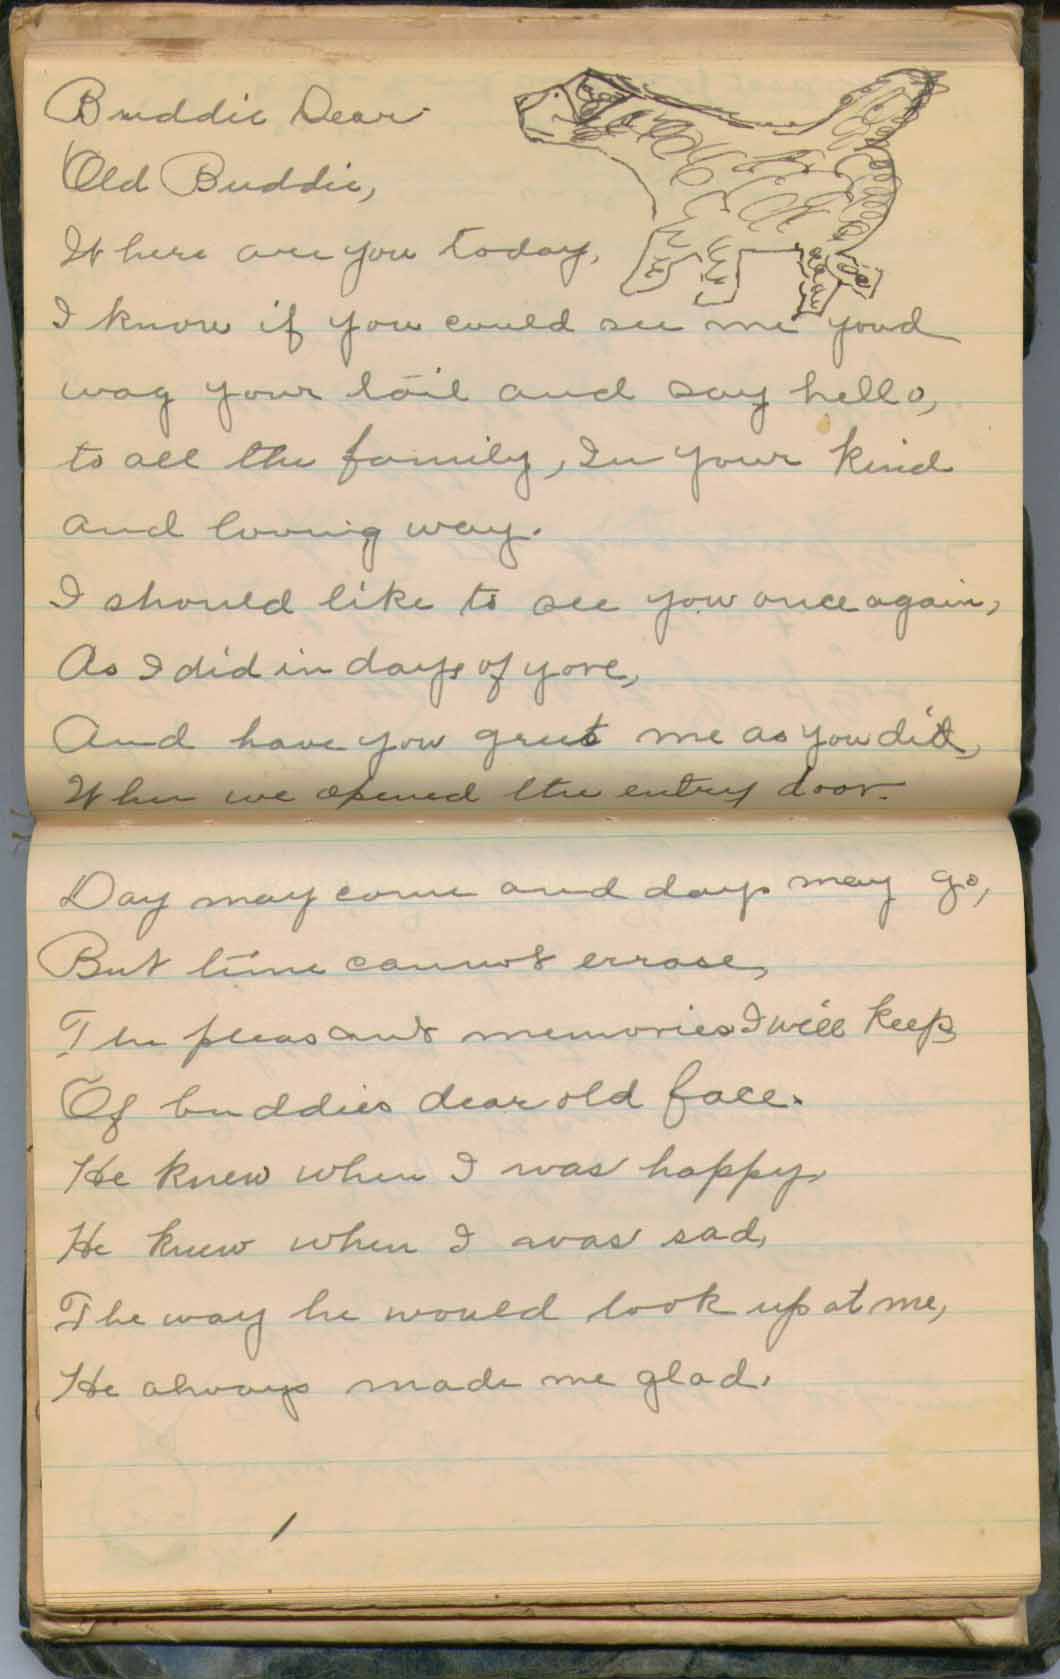 Buddie Dear
Old Buddie,
Where are you today,
I know if you could see me youd
wag your tail and say hello,
to all the family, In your kind
and loving way.
I should like to see you once again,
As I did in days of yore,
And have you greet me as you did,
When we opened the entry door.
Day may come and days may go,
But time cannot errase,
The pleasant memories I will keep,
Of buddies dear old face.
He knew when I was happy,
He knew when I was sad,
The way he would look up at me,
He always made me glad.